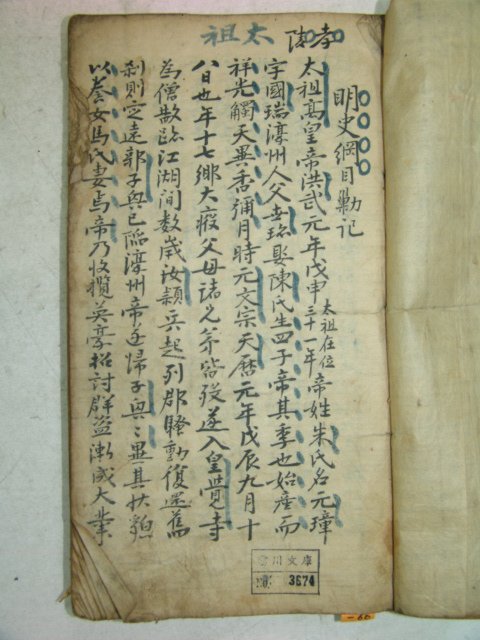 孝陵 太祖
明史綱目勦記
太祖高皇帝洪武元年戊申 太祖在位三十一年 帝姓朱氏名元璋
字國瑞濠州人父世珍娶陳氏生四子帝其季也始産而
祥光觸天異香彌月時元文宗天曆元年戊辰九月十
八日也年十七鄉大疫父母諸兄弟皆歿遂入皇覺寺
為僧跡江湖間数歲汝穎兵起列郡騷動復還舊
刹則定遠郭子興已陷濠州帝歸子興〻異其狀貌
以養女馬氏妻焉帝乃收攬英豪招討群盜漸成大業
川文庫
3674